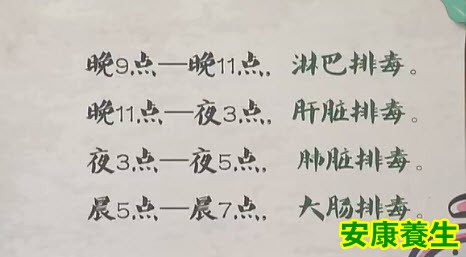 晚9点—晚11点,淋巴排毒。
晚11点—夜3点,肝脏排毒。
夜3点—夜5点,肺脏排毒。
晨5点—晨7点,大肠排毒。
安康養生